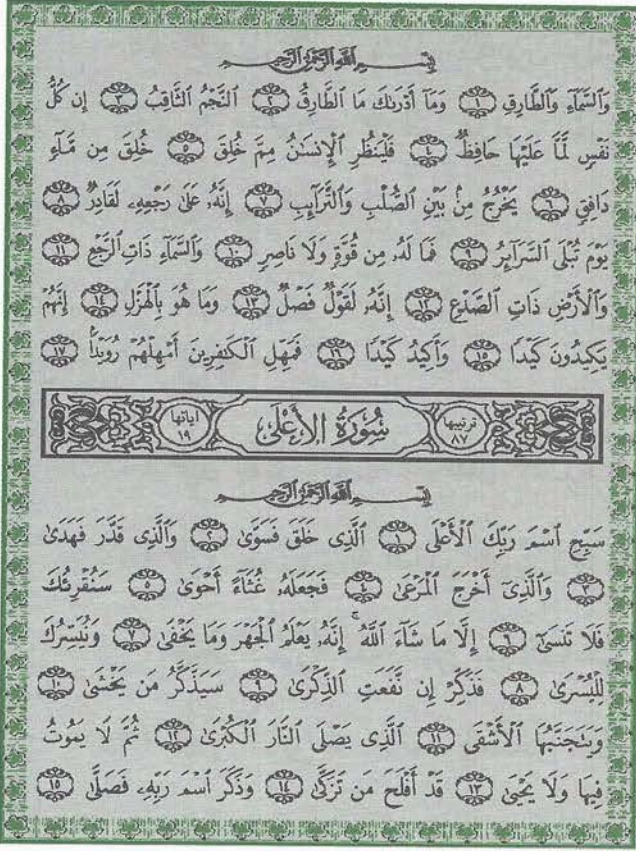 بِسْمِ ٱللَّهِ ٱلرَّحْمَٰنِ ٱلرَّحِيمِ
وَٱلسَّمَآءِ وَٱلطَّارِقِ ١ وَمَآ أَدْرَىٰكَ مَا ٱلطَّارِقُ ٢ ٱلنَّجْمُ ٱلثَّاقِبُ ٣ إِن كُلُّ
نَفْسٍ لَّمَّا عَلَيْهَا حَافِظٌ ٤ فَلْيَنظُرِ ٱلْإِنسَٰنُ مِمَّ خُلِقَ ٥ خُلِقَ مِن مَّآءٍ
دَافِقٍ ٦ يَخْرُجُ مِنۢ بَيْنِ ٱلصُّلْبِ وَٱلتَّرَآئِبِ ٧ إِنَّهُۥ عَلَىٰ رَجْعِهِۦ لَقَادِرٌ ٨
يَوْمَ تُبْلَى ٱلسَّرَآئِرُ ٩ فَمَا لَهُۥ مِن قُوَّةٍ وَلَا نَاصِرٍ ١٠ وَٱلسَّمَآءِ ذَاتِ ٱلرَّجْعِ ١١
وَٱلْأَرْضِ ذَاتِ ٱلصَّدْعِ ١٢ إِنَّهُۥ لَقَوْلٌ فَصْلٌ ١٣ وَمَا هُوَ بِٱلْهَزْلِ ١٤ إِنَّهُمْ
يَكِيدُونَ كَيْدًا ١٥ وَأَكِيدُ كَيْدًا ١٦ فَمَهِّلِ ٱلْكَٰفِرِينَ أَمْهِلْهُمْ رُوَيْدًۢا ١٧
ترتيبها ٨٧ سُورَةُ الأَعْلَىٰ اياتها ١٩
بِسْمِ ٱللَّهِ ٱلرَّحْمَٰنِ ٱلرَّحِيمِ
سَبِّحِ ٱسْمَ رَبِّكَ ٱلْأَعْلَى ١ ٱلَّذِى خَلَقَ فَسَوَّىٰ ٢ وَٱلَّذِى قَدَّرَ فَهَدَىٰ
٣ وَٱلَّذِىٓ أَخْرَجَ ٱلْمَرْعَىٰ ٤ فَجَعَلَهُۥ غُثَآءً أَحْوَىٰ ٥ سَنُقْرِئُكَ
فَلَا تَنسَىٰٓ ٦ إِلَّا مَا شَآءَ ٱللَّهُ ۚ إِنَّهُۥ يَعْلَمُ ٱلْجَهْرَ وَمَا يَخْفَىٰ ٧ وَنُيَسِّرُكَ
لِلْيُسْرَىٰ ٨ فَذَكِّرْ إِن نَّفَعَتِ ٱلذِّكْرَىٰ ٩ سَيَذَّكَّرُ مَن يَخْشَىٰ ١٠
وَيَتَجَنَّبُهَا ٱلْأَشْقَى ١١ ٱلَّذِى يَصْلَى ٱلنَّارَ ٱلْكُبْرَىٰ ١٢ ثُمَّ لَا يَمُوتُ
فِيهَا وَلَا يَحْيَىٰ ١٣ قَدْ أَفْلَحَ مَن تَزَكَّىٰ ١٤ وَذَكَرَ ٱسْمَ رَبِّهِۦ فَصَلَّىٰ ١٥